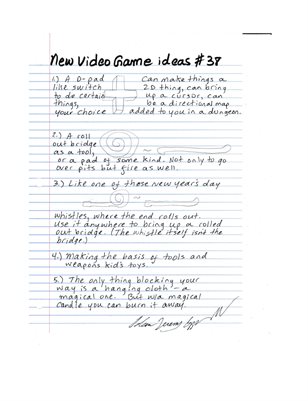 New Video Game ideas #37
1.) A D-pad Can make things a
like switch 2D thing, can bring
to do certain up a cursor, can
things, be a directional map
your choice added to you in a dungeon.
2.) A roll
out bridge
as a tool,
or a pad of some kind. Not only to go
over pits but fire as well.
3.) Like one of those new year's day
whistles, where the end rolls out.
Use it anywhere to bring up a rolled
out bridge. (The whistle itself isn't the
bridge.)
4.) Making the basis of tools and
weapons kid's toys.
5.) The only thing blocking your
way is a hanging cloth - a
magical one. But w/a magical
candle you can burn it away.